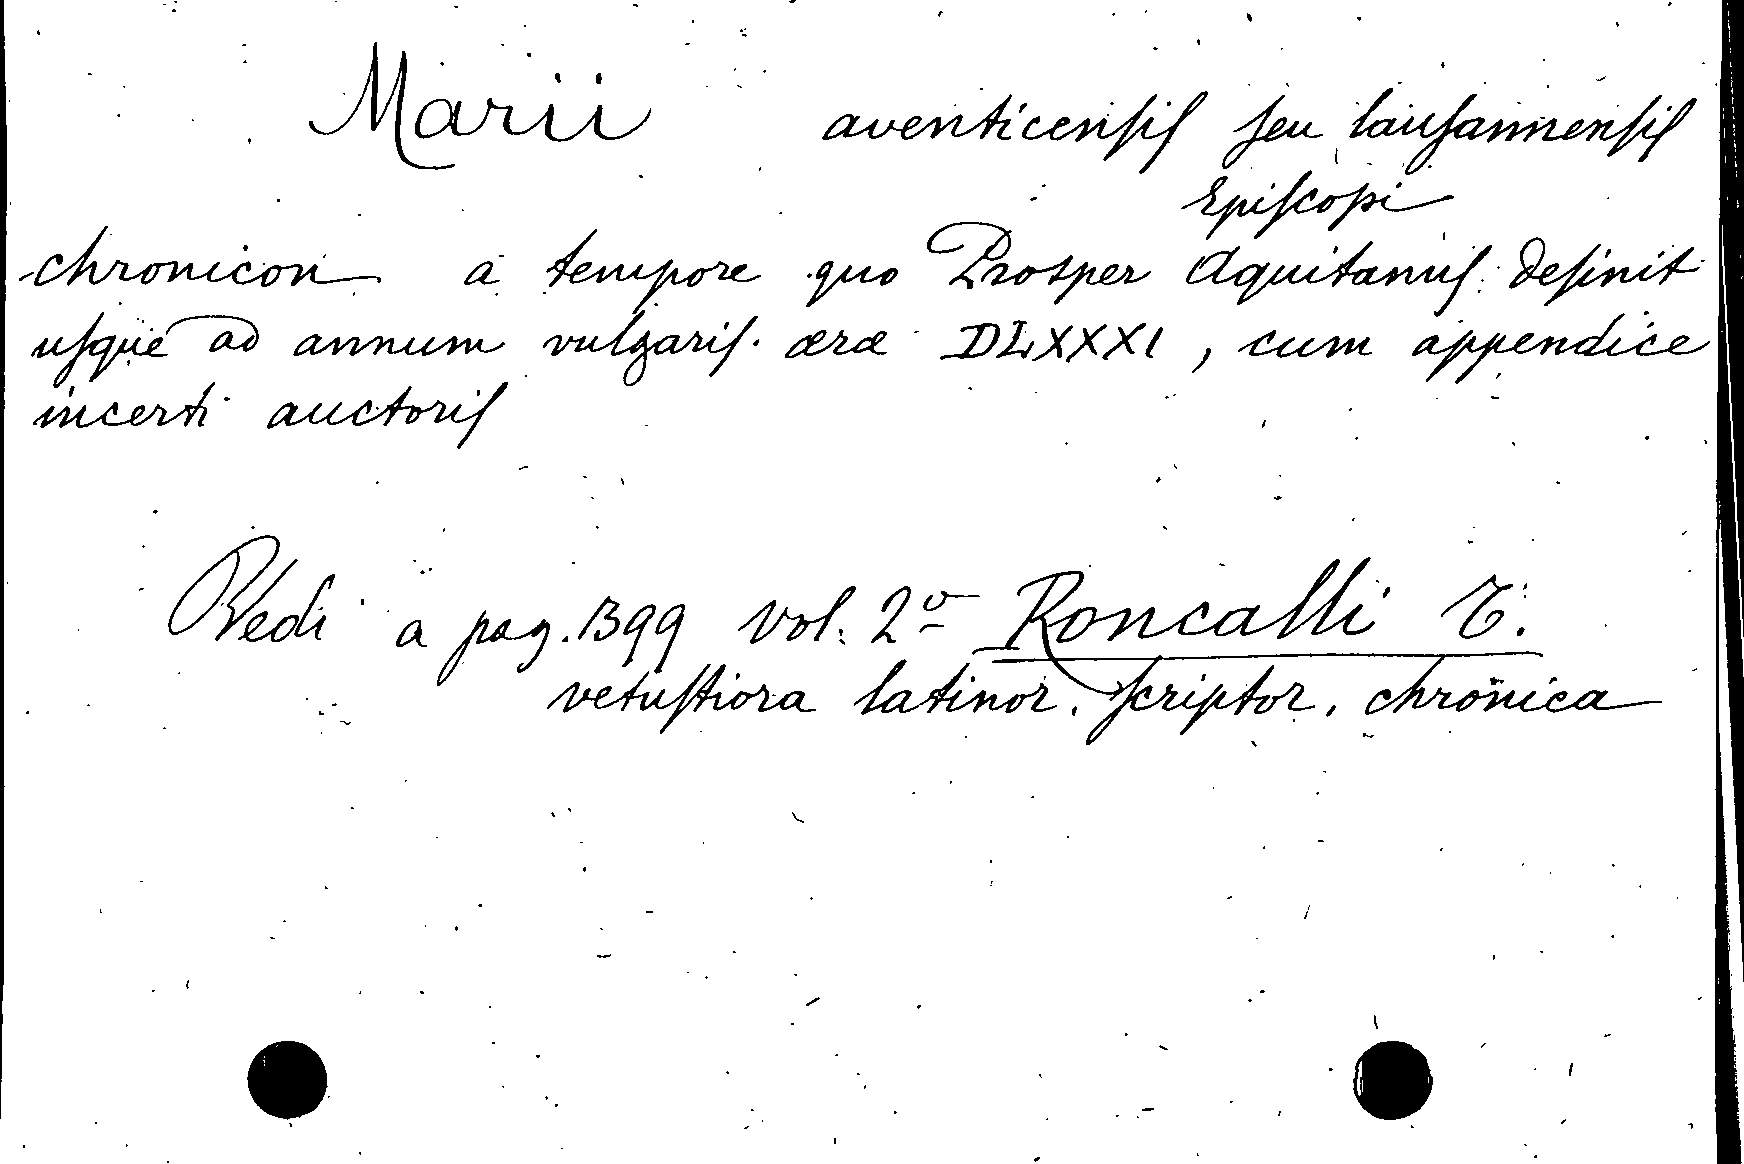 Marii aventicensis seu lausannensis
Episcopi
chronicon a tempore quo Prosper Aquitanus desinit
usque ad annum vulgaris æræ DLXXXI, cum appendice
incerti auctoris
Vedi a pag. 399 vol. 2º Roncalli T.
vetustiora latinor. scriptor. chronica